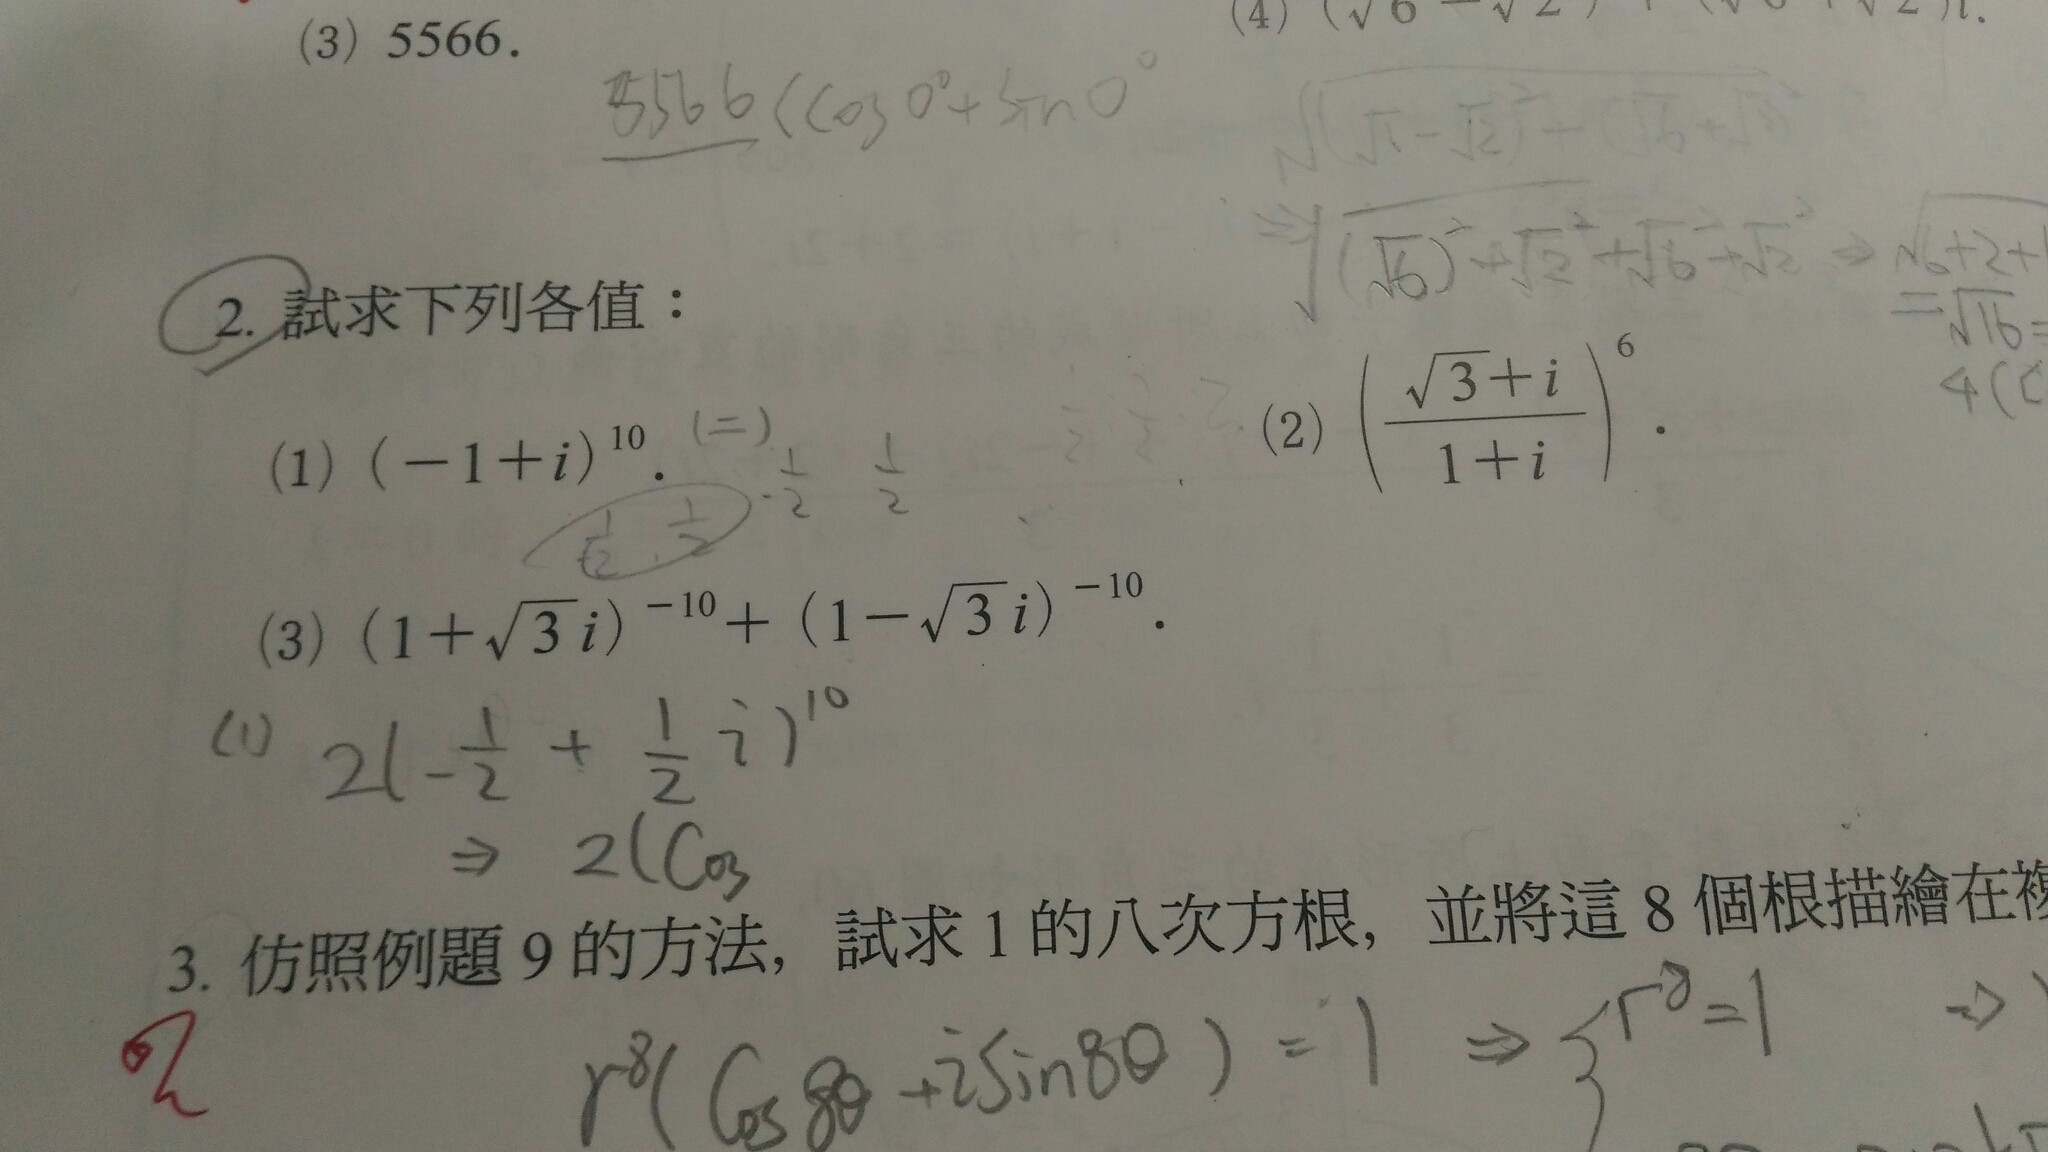 (3) 5566.
(4) (√6 − √2) + (√6 + √2)i.
5566 (Cos 0° + Sin 0°
√(√6)² + √2² + √6² + √2² ⇒ √6+2+
= √16 =
4(
2. 試求下列各值：
(1) (−1+i)¹⁰. (二) (2) ((√3+i)/(1+i))⁶.
-1/2 1/2
(3) (1+√3 i)⁻¹⁰ + (1−√3 i)⁻¹⁰.
(1) 2(-1/2 + 1/2 i)¹⁰
⇒ 2(Cos
3. 仿照例題 9 的方法，試求 1 的八次方根，並將這 8 個根描繪在複
r⁸(Cos8θ + iSin8θ) = 1 ⇒ { r⁸ = 1 ⇒